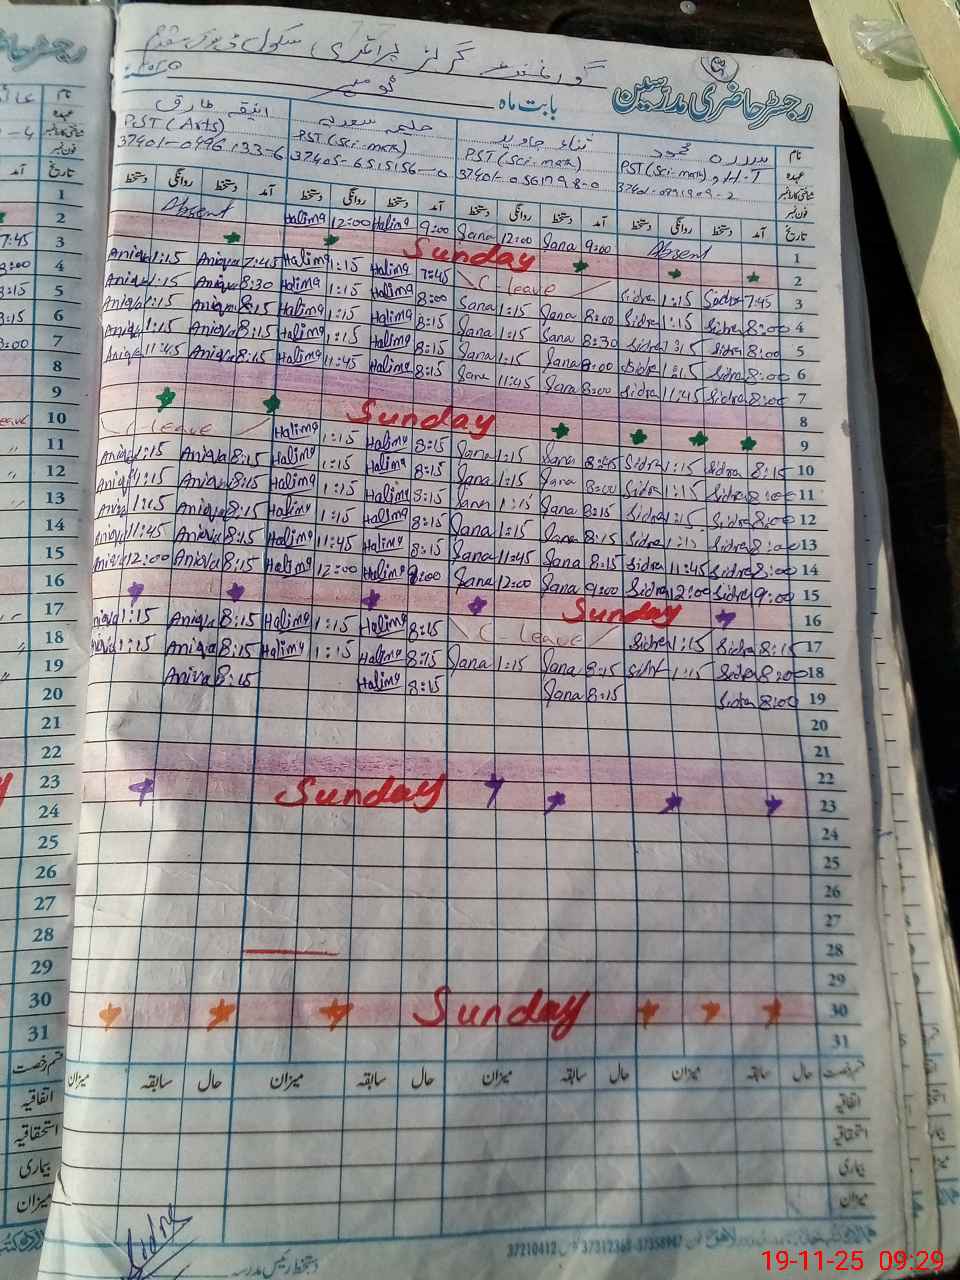 رجسٹر حاضری مدرسین
گورنمنٹ گرلز پرائمری سکول
بابت ماہ نومبر
نام
عہدہ
سدرہ محمود
PST (Sci-math), H.T
ثناء جاوید
PST (Sci-math)
37401-0561798-0
حلیمہ سعدیہ
PST (Sci-math)
37405-6515156-0
انیقہ طارق
PST (Arts)
37401-0496133-6
تاریخ آمد دستخط روانگی دستخط آمد دستخط روانگی دستخط آمد دستخط روانگی دستخط آمد دستخط روانگی دستخط
Absent Halima 12:00 Halima 9:00 Sana 12:00 Sana 9:00 Absent 1
Sunday 2
Aniqa 1:15 Aniqa 7:45 Halima 1:15 Halima 7:45 C-leave Sidra 1:15 Sidra 7:45 3
Aniqa 1:15 Aniqa 8:30 Halima 1:15 Halima 8:00 Sana 1:15 Sana 8:00 Sidra 1:15 Sidra 8:00 4
Aniqa 1:15 Aniqa 8:15 Halima 1:15 Halima 8:15 Sana 1:15 Sana 8:30 Sidra 1:15 Sidra 8:00 5
Aniqa 1:15 Aniqa 8:15 Halima 1:15 Halima 8:15 Sana 1:15 Sana 8:00 Sidra 1:15 Sidra 8:00 6
Aniqa 11:45 Aniqa 8:15 Halima 11:45 Halima 8:15 Sana 11:45 Sana 8:00 Sidra 11:45 Sidra 8:00 7
8
Sunday 9
C-leave Halima 1:15 Halima 8:15 Sana 1:15 Sana 8:45 Sidra 1:15 Sidra 8:15 10
Aniqa 1:15 Aniqa 8:15 Halima 1:15 Halima 8:15 Sana 1:15 Sana 8:00 Sidra 1:15 Sidra 8:00 11
Aniqa 1:15 Aniqa 8:15 Halima 1:15 Halima 8:15 Sana 1:15 Sana 8:15 Sidra 1:15 Sidra 8:00 12
Aniqa 1:15 Aniqa 8:15 Halima 1:15 Halima 8:15 Sana 1:15 Sana 8:15 Sidra 1:15 Sidra 8:00 13
Aniqa 11:45 Aniqa 8:15 Halima 11:45 Halima 8:15 Sana 11:45 Sana 8:15 Sidra 11:45 Sidra 8:00 14
Aniqa 12:00 Aniqa 8:15 Halima 12:00 Halima 9:00 Sana 12:00 Sana 9:00 Sidra 12:00 Sidra 9:00 15
Sunday 16
Aniqa 1:15 Aniqa 8:15 Halima 1:15 Halima 8:15 C-leave Sidra 1:15 Sidra 8:15 17
Aniqa 1:15 Aniqa 8:15 Halima 1:15 Halima 8:15 Sana 1:15 Sana 8:15 Sidra 1:15 Sidra 8:00 18
Aniqa 8:15 Halima 8:15 Sana 8:15 Sidra 8:00 19
20
21
22
Sunday 23
24
25
26
27
28
29
Sunday 30
31
قسم رخصت حال سابقہ میزان حال سابقہ میزان حال سابقہ میزان حال سابقہ میزان
اتفاقیہ
استحقاقیہ
بیماری
میزان
Sidra
دستخط رئیس مدرسہ
37210412 37312368-37358947
تاریخ
1
2
3
4
5
6
7
8
9
10
11
12
13
14
15
16
17
18
19
20
21
22
23
24
25
26
27
28
29
30
31
قسم رخصت
اتفاقیہ
استحقاقیہ
بیماری
میزان
19-11-25 09:29